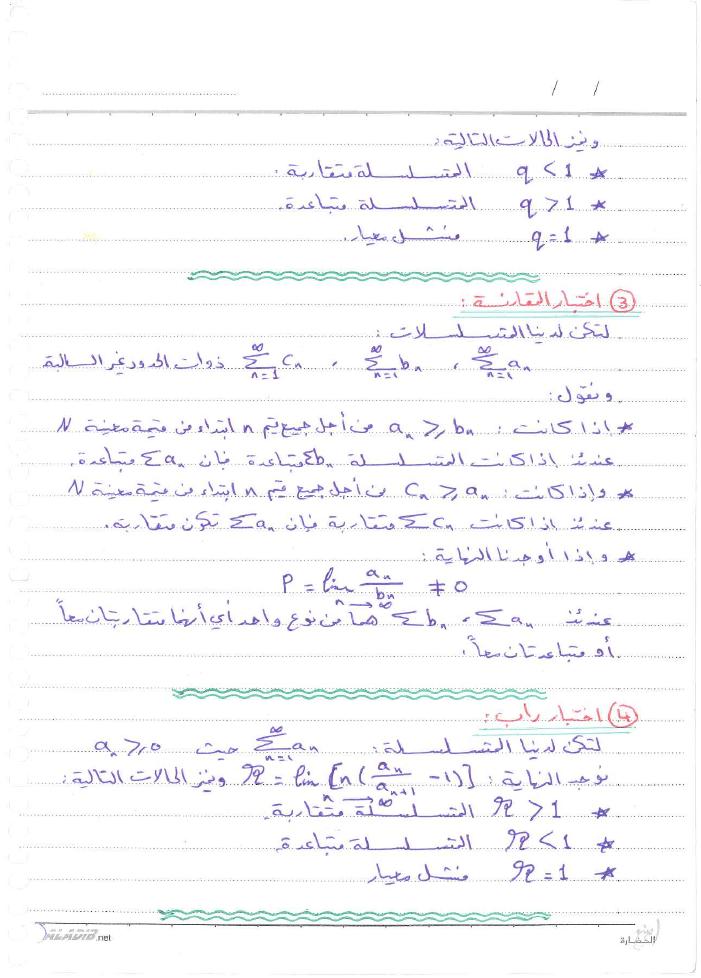 / /
ونميز الحالات التالية:
* q < 1 المتسلسلة متقاربة.
* q > 1 المتسلسلة متباعدة.
* q = 1 فشل معيار.
③ اختبار المقارنة:
لتكن لدينا المتسلسلات:
∑_{n=1}^{∞} a_n ، ∑_{n=1}^{∞} b_n ، ∑_{n=1}^{∞} c_n ذوات الحدود غير السالبة
ونقول:
* إذا كانت: a_n ≥ b_n من أجل جميع قيم n ابتداء من قيمة معينة N
عندئذ إذا كانت المتسلسلة ∑b_n متباعدة فإن ∑a_n متباعدة.
* وإذا كانت: c_n ≥ a_n من أجل جميع قيم n ابتداء من قيمة معينة N
عندئذ إذا كانت ∑c_n متقاربة فإن ∑a_n تكون متقاربة.
* وإذا أوجدنا النهاية:
P = lim_{n→∞} a_n/b_n ≠ 0
عندئذ ∑a_n ، ∑b_n هما من نوع واحد أي أنهما متقاربتان معاً
أو متباعدتان معاً.
④ اختبار راب:
لتكن لدينا المتسلسلة: ∑_{n=1}^{∞} a_n حيث a_n ≥ 0
نوجد النهاية: R = lim_{n→∞} [n(a_n/a_{n+1} - 1)] ونميز الحالات التالية:
* R > 1 المتسلسلة متقاربة.
* R < 1 المتسلسلة متباعدة.
* R = 1 فشل معيار
.net
الحضارة